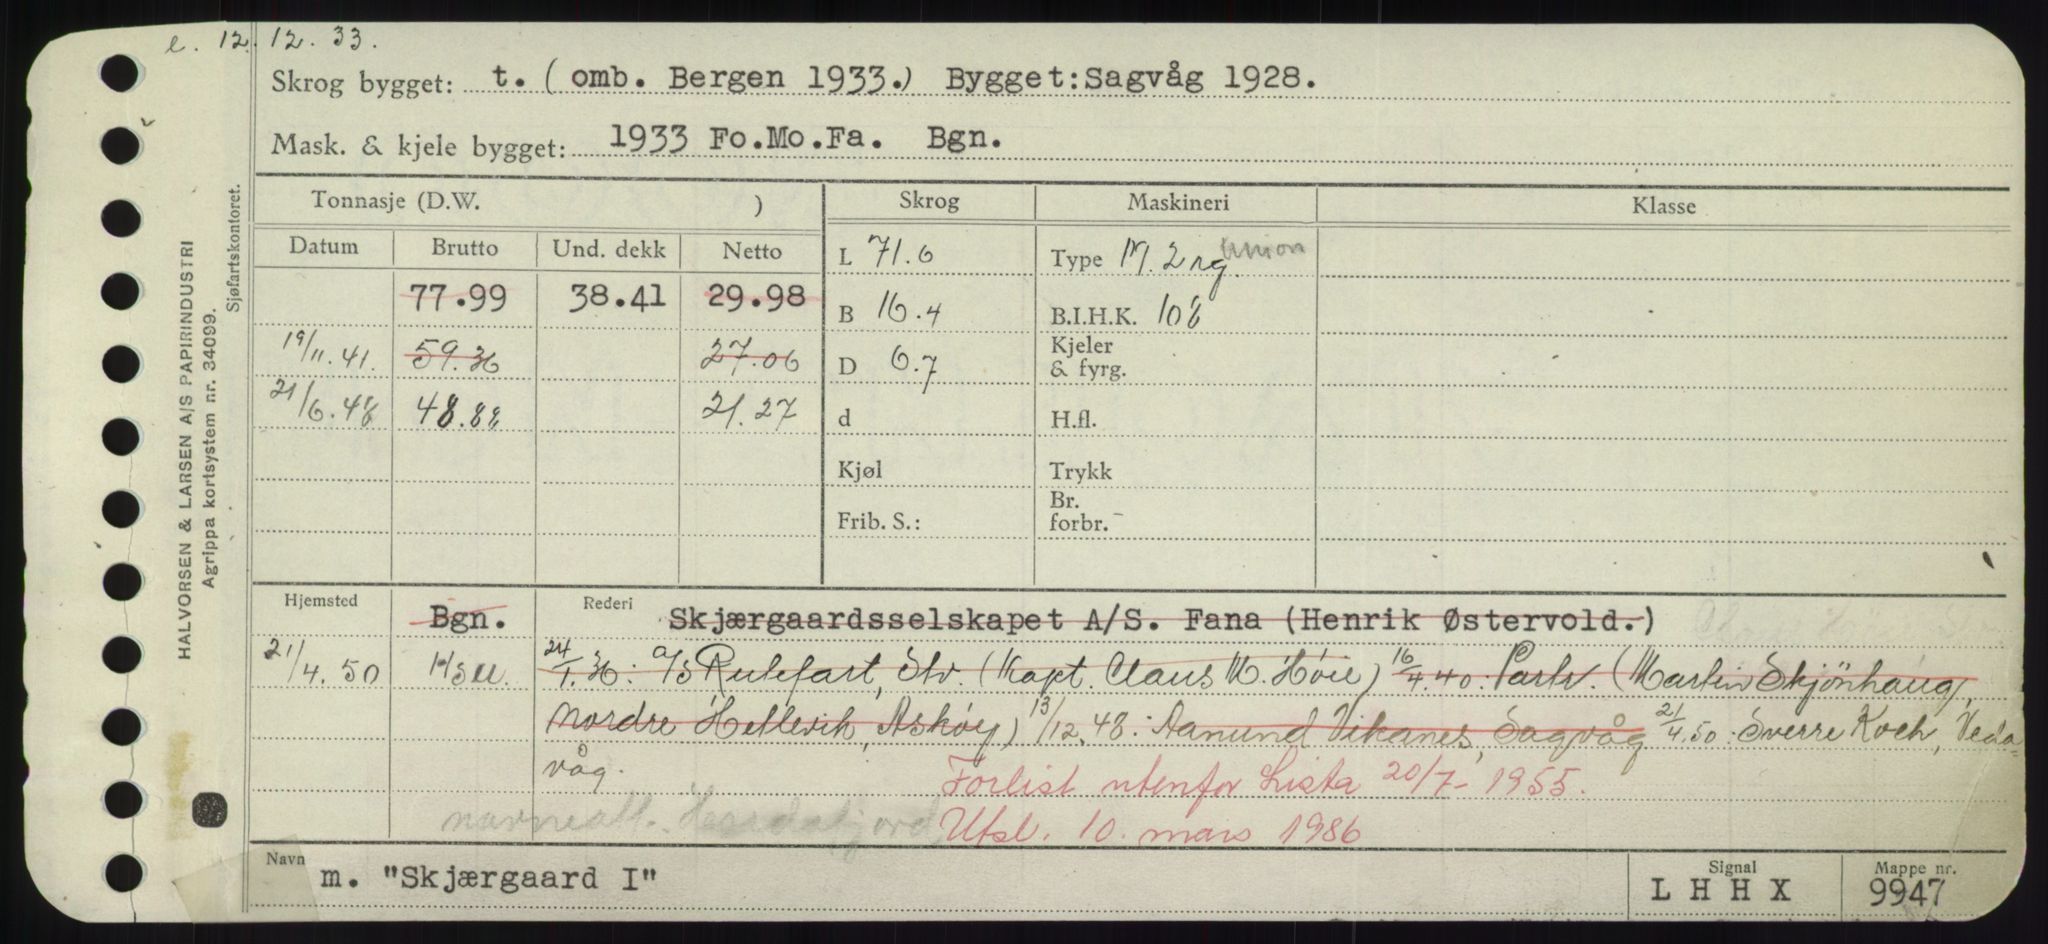 e. 12.12.33.
Skrog bygget: t. (omb. Bergen 1933.) Bygget:Sagvåg 1928.
Mask. & kjele bygget: 1933 Fo.Mo.Fa. Bgn.
HALVORSEN & LARSEN A/S PAPIRINDUSTRI
Agrippa kortsystem nr. 34099.
Sjøfartskontoret.
Tonnasje (D.W. ) Skrog Maskineri Klasse
Datum Brutto Und. dekk Netto L 71.6 Type M. 2 rg. Union
77.99 38.41 29.98 B 16.4 B.I.H.K. 108
19/11.41. 59.36 27.06 D 6.7 Kjeler & fyrg.
21/6.48 48.88 21.27 d H.fl.
Kjøl Trykk
Frib. S.: Br. forbr.
Hjemsted Bgn. Rederi Skjærgaardsselskapet A/S. Fana (Henrik Østervold.)
21/4.50 HSU. 24/1.36: A/S Rutefart, Slv. (Kapt. Claus M. Høie) 16/4.40: Partr. (Martin Skjönhaug,
Nordre Hetlevik, Askøy) 13/12.48: Aanund Vikanes, Sagvåg 21/4.50: Sverre Koch, Veda-
våg.
Forlist utenfor Lista 20/7-1955.
navneatt. Utsl. 10. mars 1986
Navn m. "Skjærgaard I" Signal LHHX Mappe nr. 9947